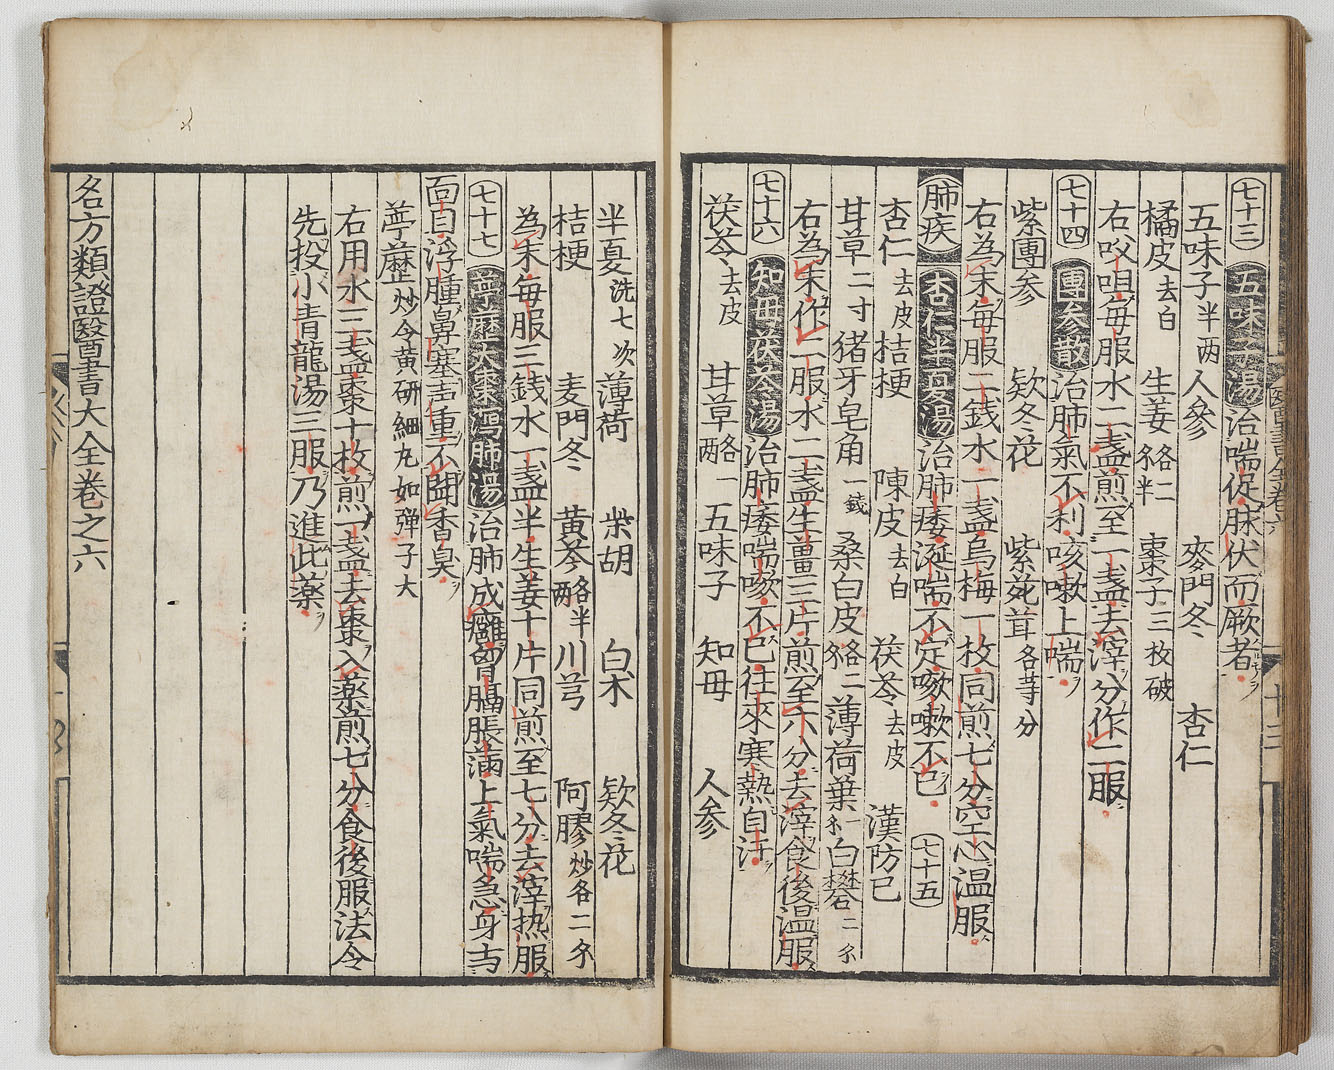 七十三 五味子湯 治喘促脉伏而厥者
五味子半两 人參 麥門冬 杏仁
橘皮去白 生姜各二 棗子三枚破
右㕮咀每服水二盞煎至一盞去滓分作二服
七十四 團參散 治肺氣不利咳嗽上喘
紫團參 欵冬花 紫菀茸各等分
右為末每服二錢水一盞烏梅一枚同煎七分空心温服
肺疾 杏仁半夏湯 治肺痿涎喘不定咳嗽不已 七十五
杏仁去皮 桔梗 陳皮去白 茯苓去皮 漢防已
甘草二寸 猪牙皂角一錢 桑白皮 薄荷葉 白礬
右為末作二服水二盞生薑三片煎至六分去滓食後温服
七十六 知母茯苓湯 治肺痿喘嗽不已往來寒熱自汗
茯苓去皮 甘草 五味子 知母 人參
半夏洗七次 薄荷 柴胡 白术 欵冬花
桔梗 麦門冬 黃芩 川芎 阿膠炒各二
為末每服三錢水一盞半生姜十片同煎至七分去滓热服
七十七 葶藶大棗瀉肺湯 治肺成癰胷膈脹滿上氣喘急身与
面目浮腫鼻塞声重不聞香臭
葶藶炒令黄研細丸如弹子大
右用水三盞棗十枚煎一盞去棗入薬煎七分食後服法令
先投小青龍湯三服乃進此薬
名方類證醫書大全卷之六